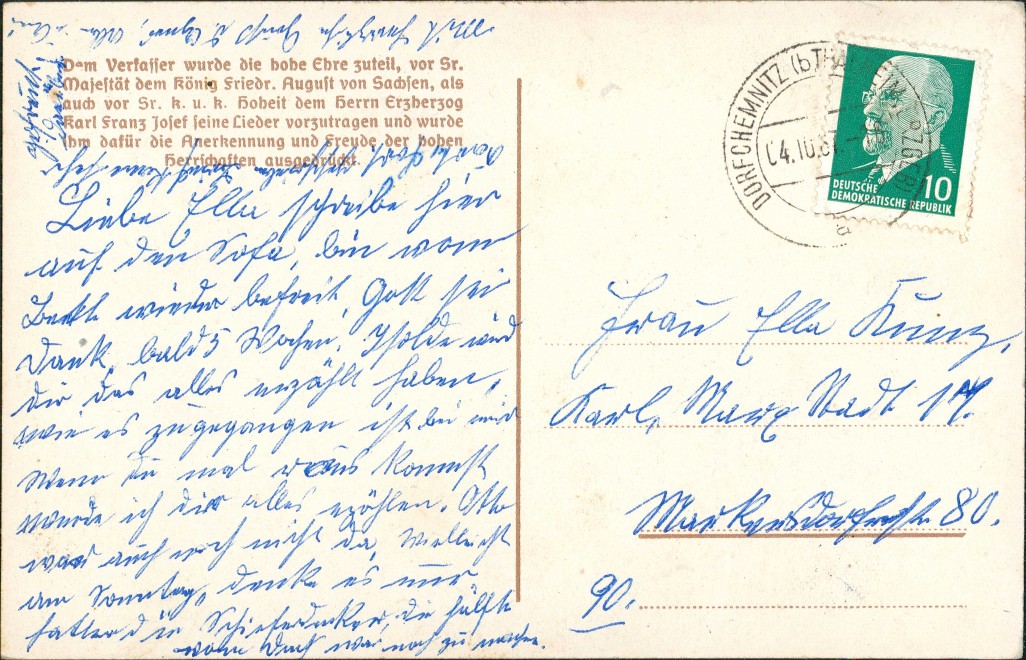 Dem Verfasser wurde die hohe Ehre zuteil, vor Sr.
Majestät dem König Friedr. August von Sachsen, als
auch vor Sr. k. u. k. Hoheit dem Herrn Erzherzog
Karl Franz Josef seine Lieder vorzutragen und wurde
ihm dafür die Anerkennung und Freude der hohen
Herrschaften ausgedrückt.
Liebe Ella schreibe hier
auf den Sofa, bin vom
Bett wieder befreit, Gott sei
Dank, bald 5 Wochen. Isolde wird
dir das alles erzählt haben,
wie es zugegangen ist bei mir
Wenn du mal raus kommst
werde ich dir alles erzählen. Otto
war auch noch nicht da, vielleicht
am Sonntag, denke es mir
hatte die Schieferdecker, die hälfte
vom Dach war noch zu machen.
DORFCHEMNITZ (b THALHEIM
04.10.6
DEUTSCHE
DEMOKRATISCHE REPUBLIK
10
Frau Ella Kunz,
Karl, Marx Stadt 14.
Markersdorferstr. 80.
90.